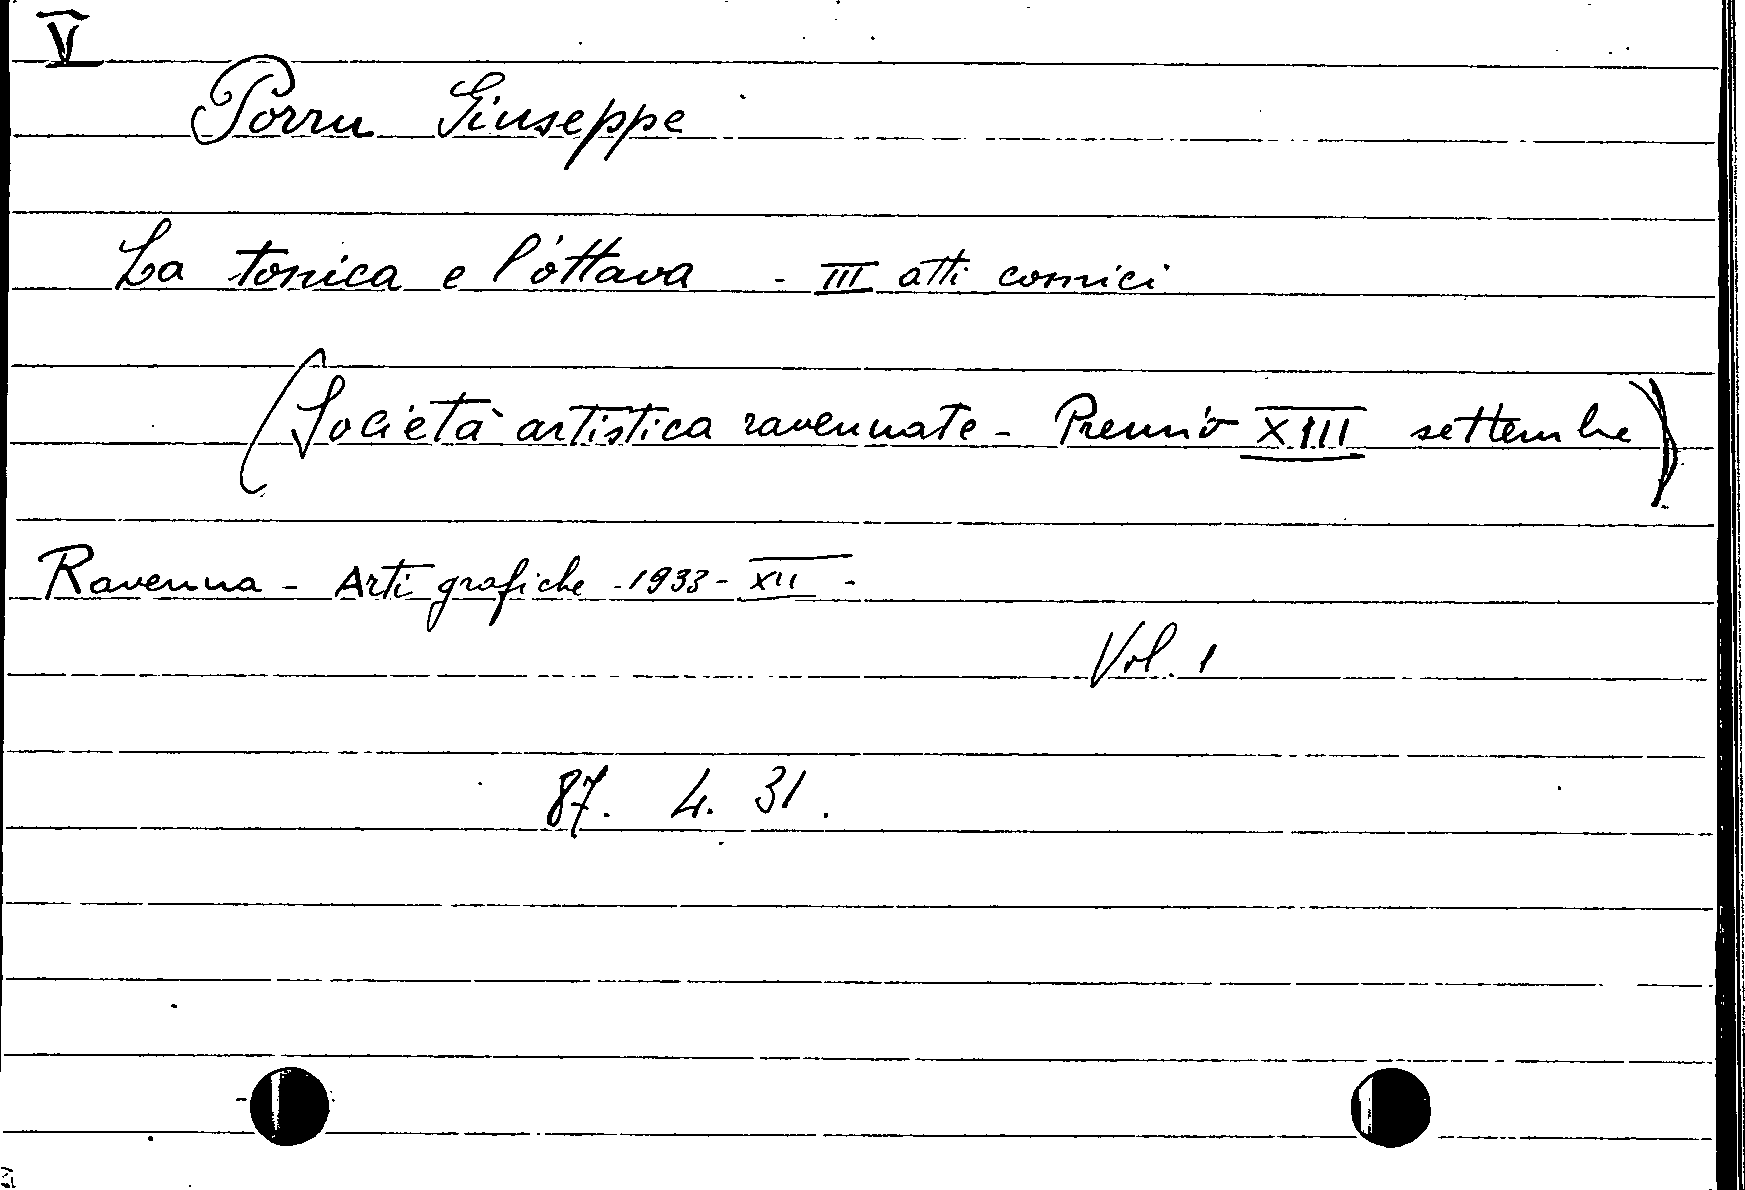 V
Porru Giuseppe
La tonica e l'ottava - III atti comici
(Società artistica ravennate - Premio XIII settembre)
Ravenna - Arti grafiche - 1933 - XII -
Vol. 1
87. 4. 31.